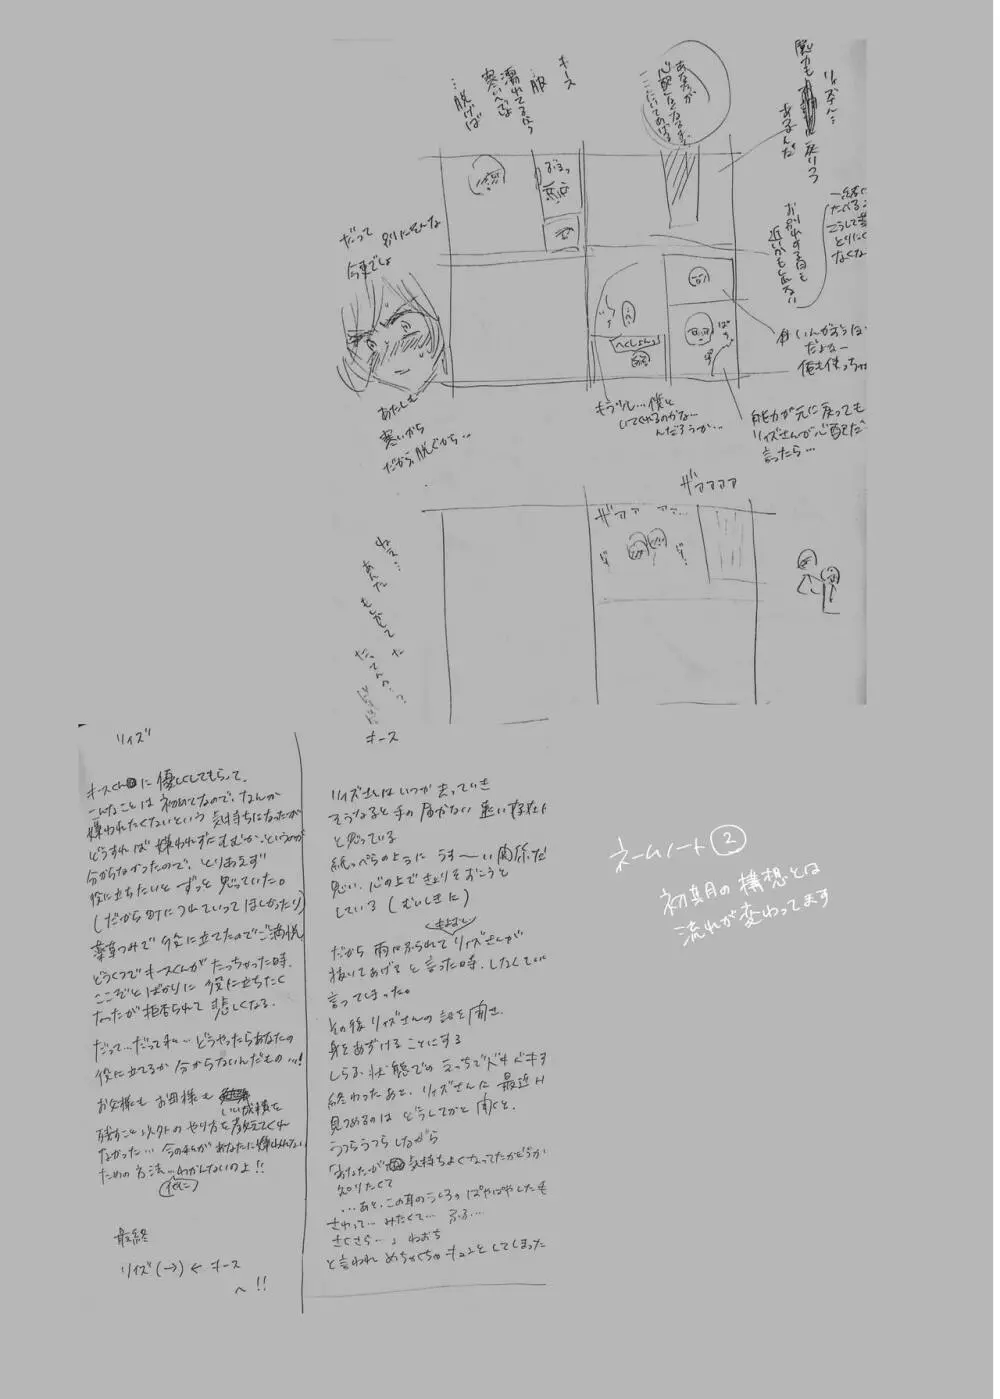 リィズさん…
魔力も
戻りつつ
あるんだ
お別れする日も
近いかも知れない
あなたが
心配になるまで
ここにいてあげる
キース
服
濡れてるから
寒いでしょ
…脱げば
だって
別にそんな
今更でしょ
あたしも
寒いから
だから、脱ぐから…
へくしょんっ
もう少し…僕と
いてくれるのかな…
んだろうか…
能力が元に戻っても
リィズさんが心配だ
言ったら…
ザァァァァ
ザァァァ
ねえ…
あんた
もしかして
キース
リィズ
キースくんに優しくしてもらって、
こんなことは初めてなので、なんか
嫌われたくないという気持ちになったが
どうすれば嫌われずにすむか、というのが
分からなかったので、とりあえず
役に立ちたいとずっと思っていた。
(だから町につれていってほしかった)
薬草つみで役に立てたのでご満悦
どうくつでキースくんがたっちゃった時、
ここぞとばかりに役に立ちたく
なったが拒否られて悲しくなる。
だって…だって私…どうやったらあなたの
役に立てるか分からないんだもの…!
お父様もお母様も
いい成績を
残すこと以外のやり方を教えてくれ
なかった…今の私があなたに嫌われない
ための方法…わかんないのよ!!
(他に)
最終
リィズ(→)←キース
へ!!
リィズさんはいつか去っていき
そうなると手の届かない遠い存在
と思っている
紙っぺらのようにうす〜い関係だ
思い、心の上できょりをおこうと
している(むいしきに)
だから雨にふられてリィズさんが
抜いてあげてと言った時、しなくてい
言ってしまった。
その後リィズさんの話を聞き、
身をあずけることにする
しらふ状態でのえっちでドキドキ
終わったあと、リィズさんに最近
見つめるのはどうしてかと聞くと、
うつらうつらしながら
「あなたが気持ちよくなってたかどうか
知りたくて
…あと、この耳のうしろのぱやぱやしたも
さわって…みたくて…ふふ…
さくさら…」ねおち
と言われめちゃくちゃキュンとしてしまった
ネームノート②
初期の構想とは
流れが変わってます